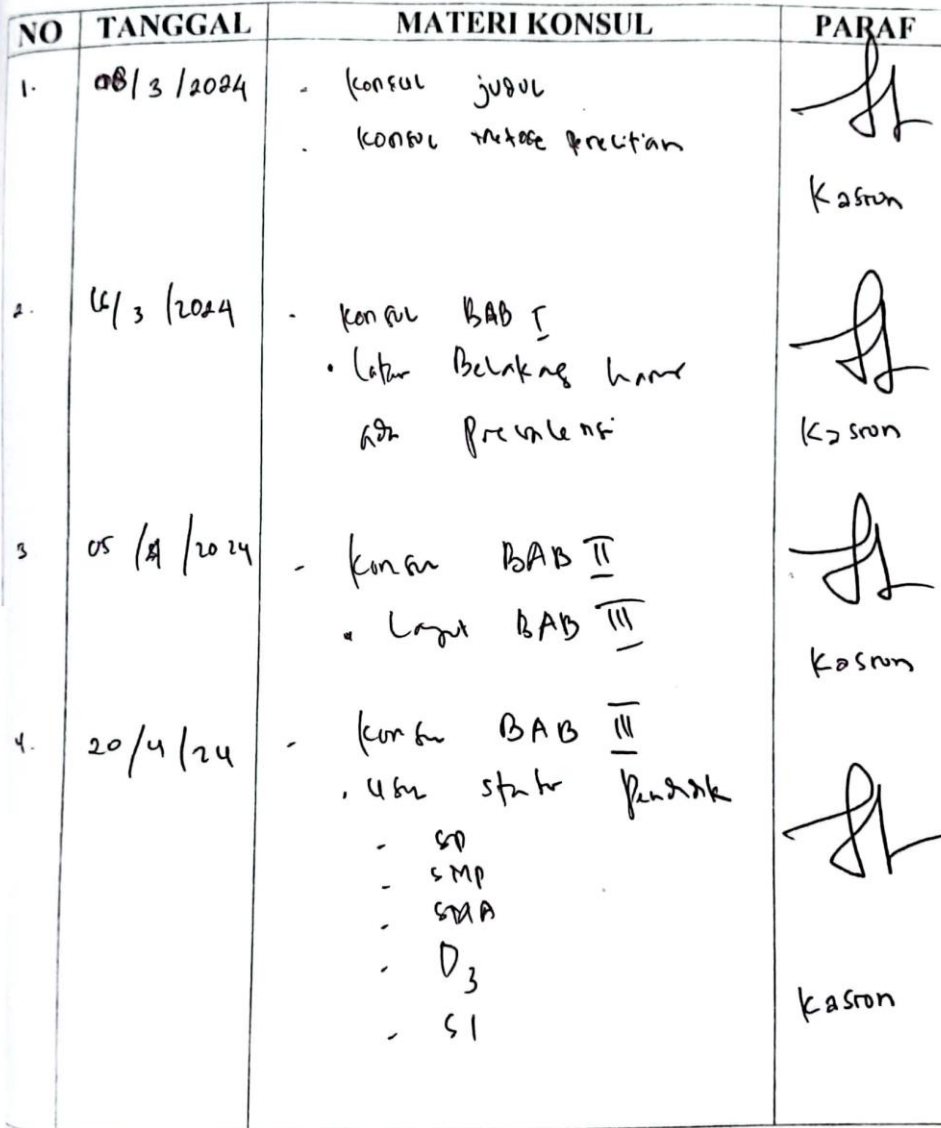 NO TANGGAL MATERI KONSUL PARAF
1. 08/3/2024 - Konsul judul
. Konsul metode penelitian
Kasron
2. /3/2024 - Konsul BAB I
• Latar Belakang harus
ada Prevalensi
Kasron
3 05/4/2024 - Konsul BAB II
• Lanjut BAB III
Kasron
4. 20/4/24 - Konsul BAB III
. Pendidik
- SD
- SMP
- SMA
- D3
- S1
Kasron